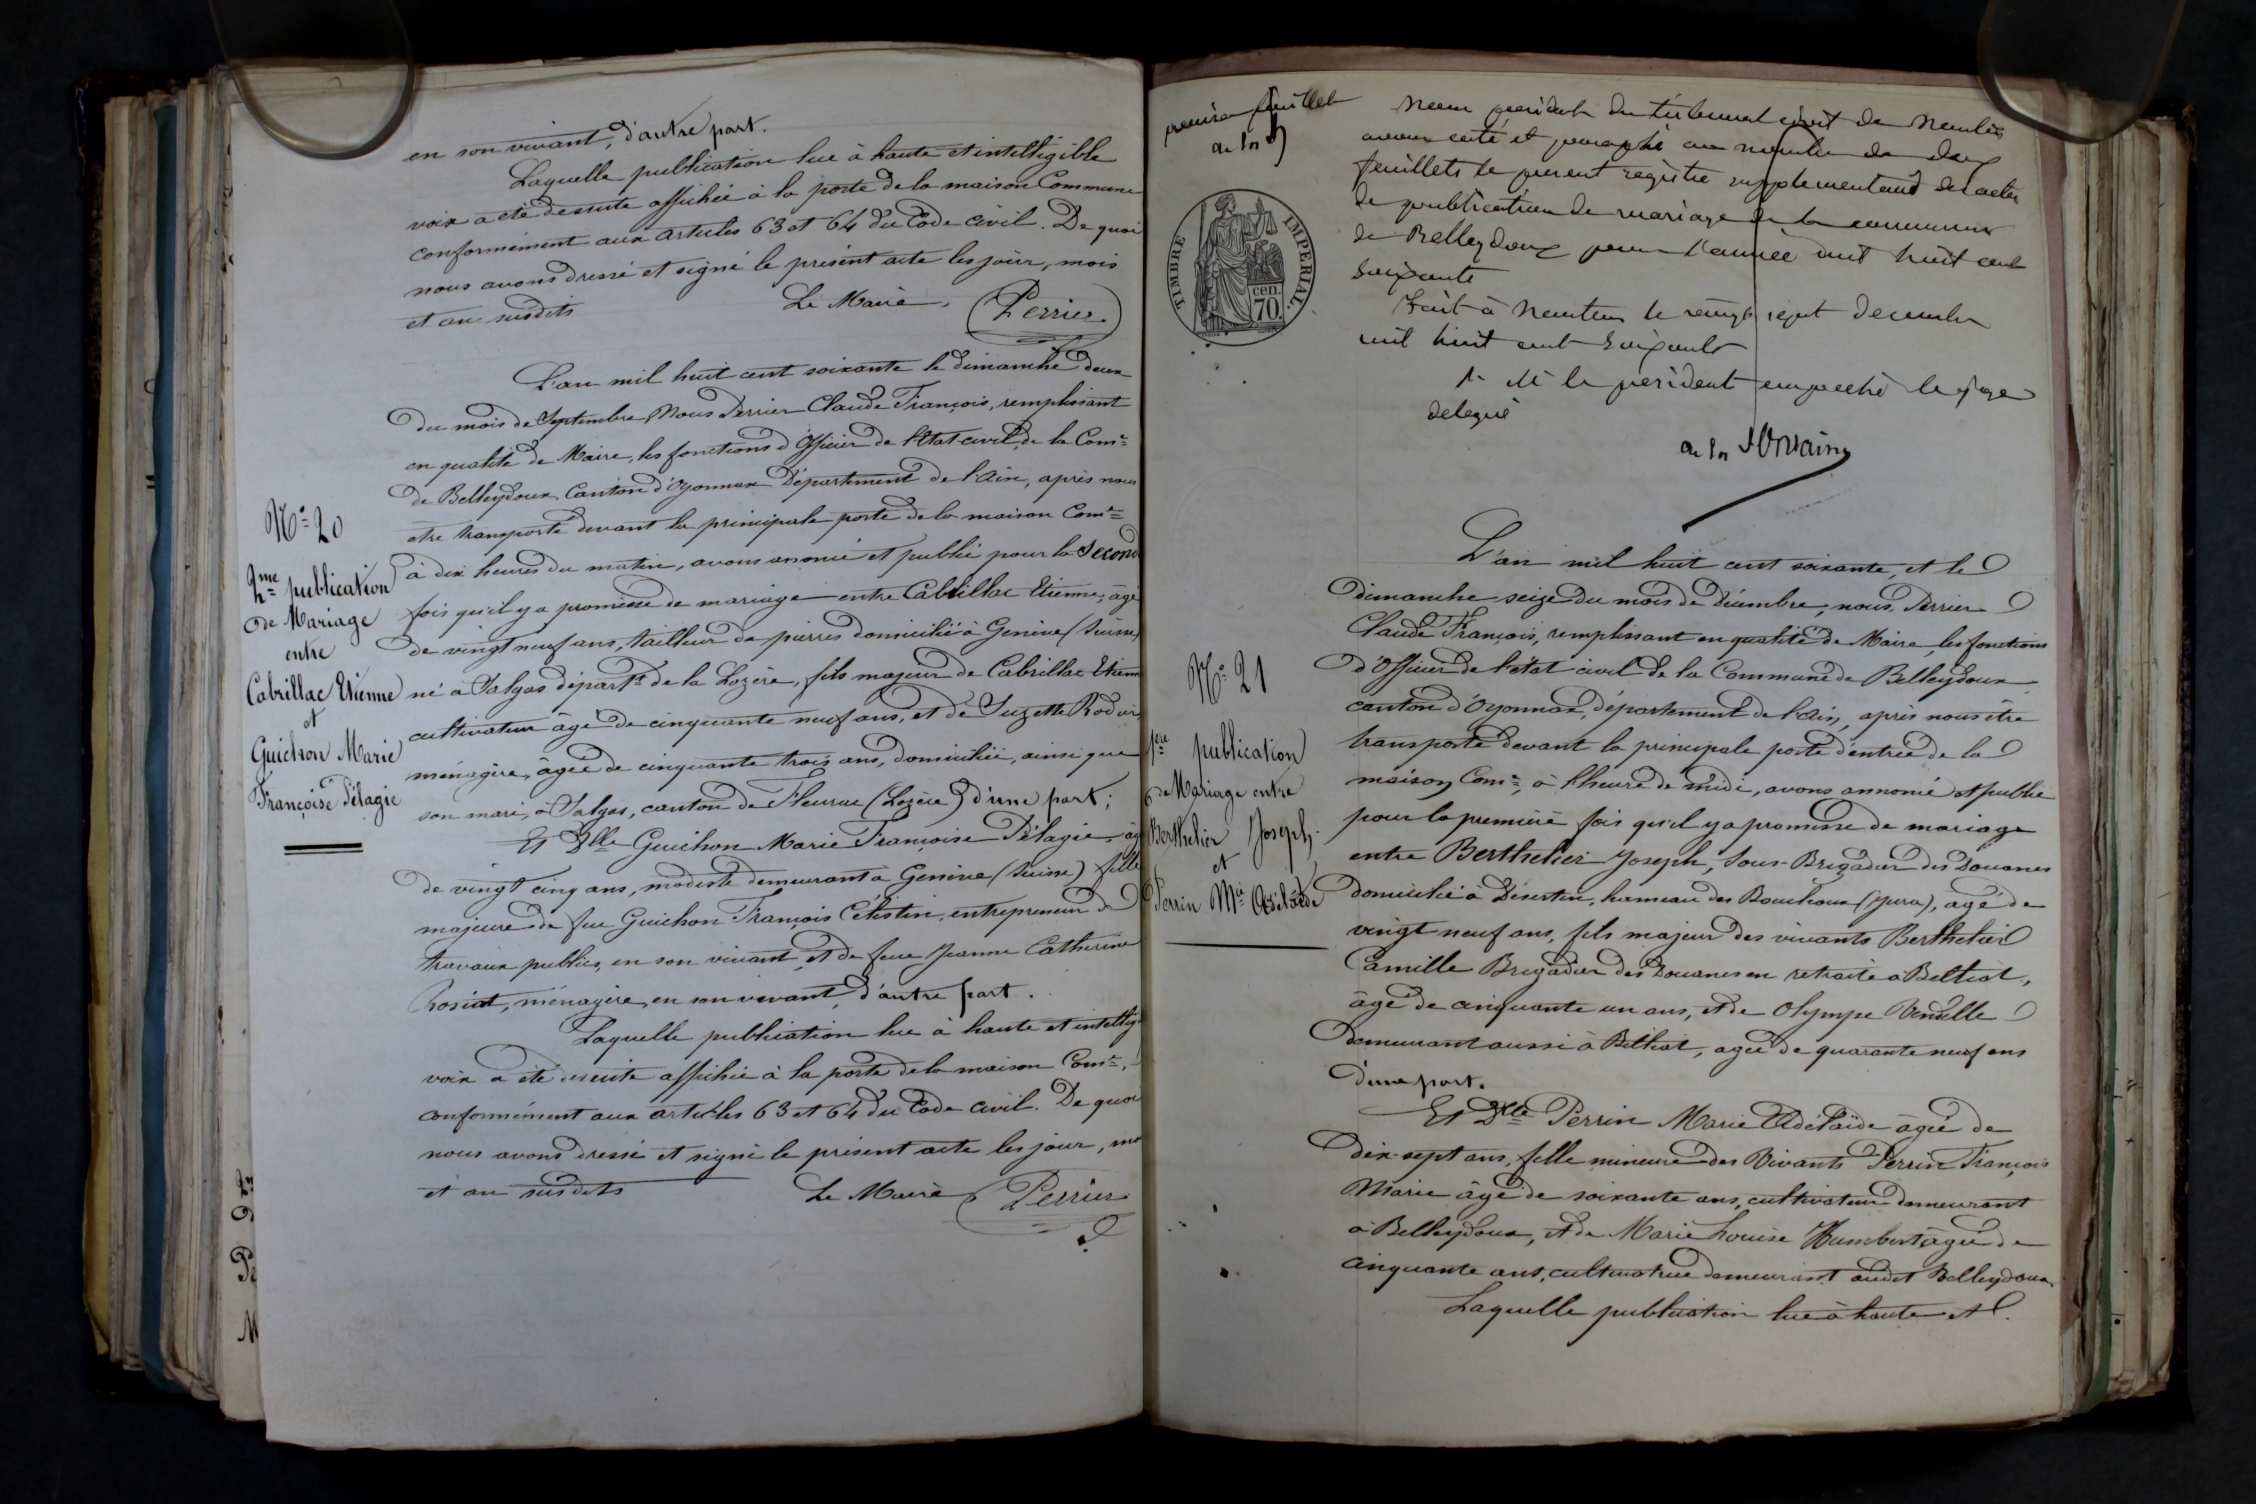 en son vivant, d'autre part.
Laquelle publication lue à haute et intelligible
voix a été dessuite affichée à la porte de la maison Commune
conformément aux articles 63 et 64 du Code civil. De quoi
nous avons dressé et signé le présent acte les jour, mois
et an susdits
Le Maire,
Perrier
L'an mil huit cent soixante le dimanche deux
du mois de Septembre, Nous Perrier Claude François, remplissant
en qualité de Maire, les fonctions d'Officier de l'Etat civil, de la Com.ne
de Belleydoux, Canton d'Oyonnax Département de l'Ain, après nous
etre transporté devant la principale porte de la maison Com.ne
à dix heures du matin, avons annoncé et publié pour la second
fois qu'il y a promesse de mariage entre Cabrillac Etienne, âgé
de vingt neuf ans, tailleur de pierres domicilié à Genève (Suisse)
né à Salgas départ.t de la Lozère, fils majeur de Cabrillac Etienne
cultivateur âgé de cinquante neuf ans, et de Suzette
ménagère, âgée de cinquante trois ans, domiciliée, ainsi que
son mari, à Salgas, canton de Fleurac (Lozère) d'une part;
Et Dlle Guichon Marie Françoise Pélagie, âg
de vingt cinq ans, modiste demeurant à Genève (Suisse) fille
majeure de feu Guichon François Célestin, entrepreneur de
travaux publics, en son vivant, et de feue Jeanne Catherine
Rosiat, ménagère, en son vivant, d'autre part.
Laquelle publication lue à haute et intellig
voix a été desuite affichée à la porte de la maison Com.ne,
conformément aux articles 63 et 64 du Code civil. De quoi
nous avons dressé et signé le présent acte les jour, mo
et an susdits
Le Maire
Perrier
N° 20
2me publication
de Mariage
entre
Cabrillac Etienne
et
Guichon Marie
Françoise Pélagie
premier feuillet
Nous président du tribunal civil de Nantua
avons coté et paraphé au nombre de deux
feuillets le present registre supplementaire des actes
de publication de mariage de la commune
de Belleydoux pour l'année mil huit cent
soixante
Fait à Nantua le vingt sept decembre
mil huit cent soixante
le président empeché le juge
delegué
TIMBRE IMPERIAL.
70. cen.
L'an mil huit cent soixante, et le
dimanche seize du mois de Décembre, nous, Perrier
Claude François, remplissant en qualité de Maire, les fonctions
d'Officier de l'état civil de la Commune de Belleydoux
canton d'Oyonnax, département de l'Ain, après nous être
transporté devant la principale porte d'entrée de la
maison Com.ne, à l'heure de midi, avons annoncé et publié
pour la première fois qu'il y a promesse de mariage
entre Berthelier Joseph, Sous-Brigadier des Douanes
domicilié à Désertin, hameau des Bouchoux (Jura), agé de
vingt neuf ans, fils majeur des vivants Berthelier
Camille Brigadier des Douanes en retraite à Belliat,
âgé de cinquante un ans, et de Olympe
demeurant aussi à Belliat, agée de quarante neuf ans
d'une part.
Et Dlle Perrin Marie Adélaïde âgée de
dix-sept ans, fille mineure des Vivants Perrin François
Marie âgé de soixante ans, cultivateur demeurant
à Belleydoux, et de Marie Louise Humbert âgée de
cinquante ans, cultivatrice demeurant audit Belleydoux.
Laquelle publication lue à haute et
N° 21
1ère publication
de Mariage entre
Berthelier Joseph.
et
Perrin Mie Adélaïde